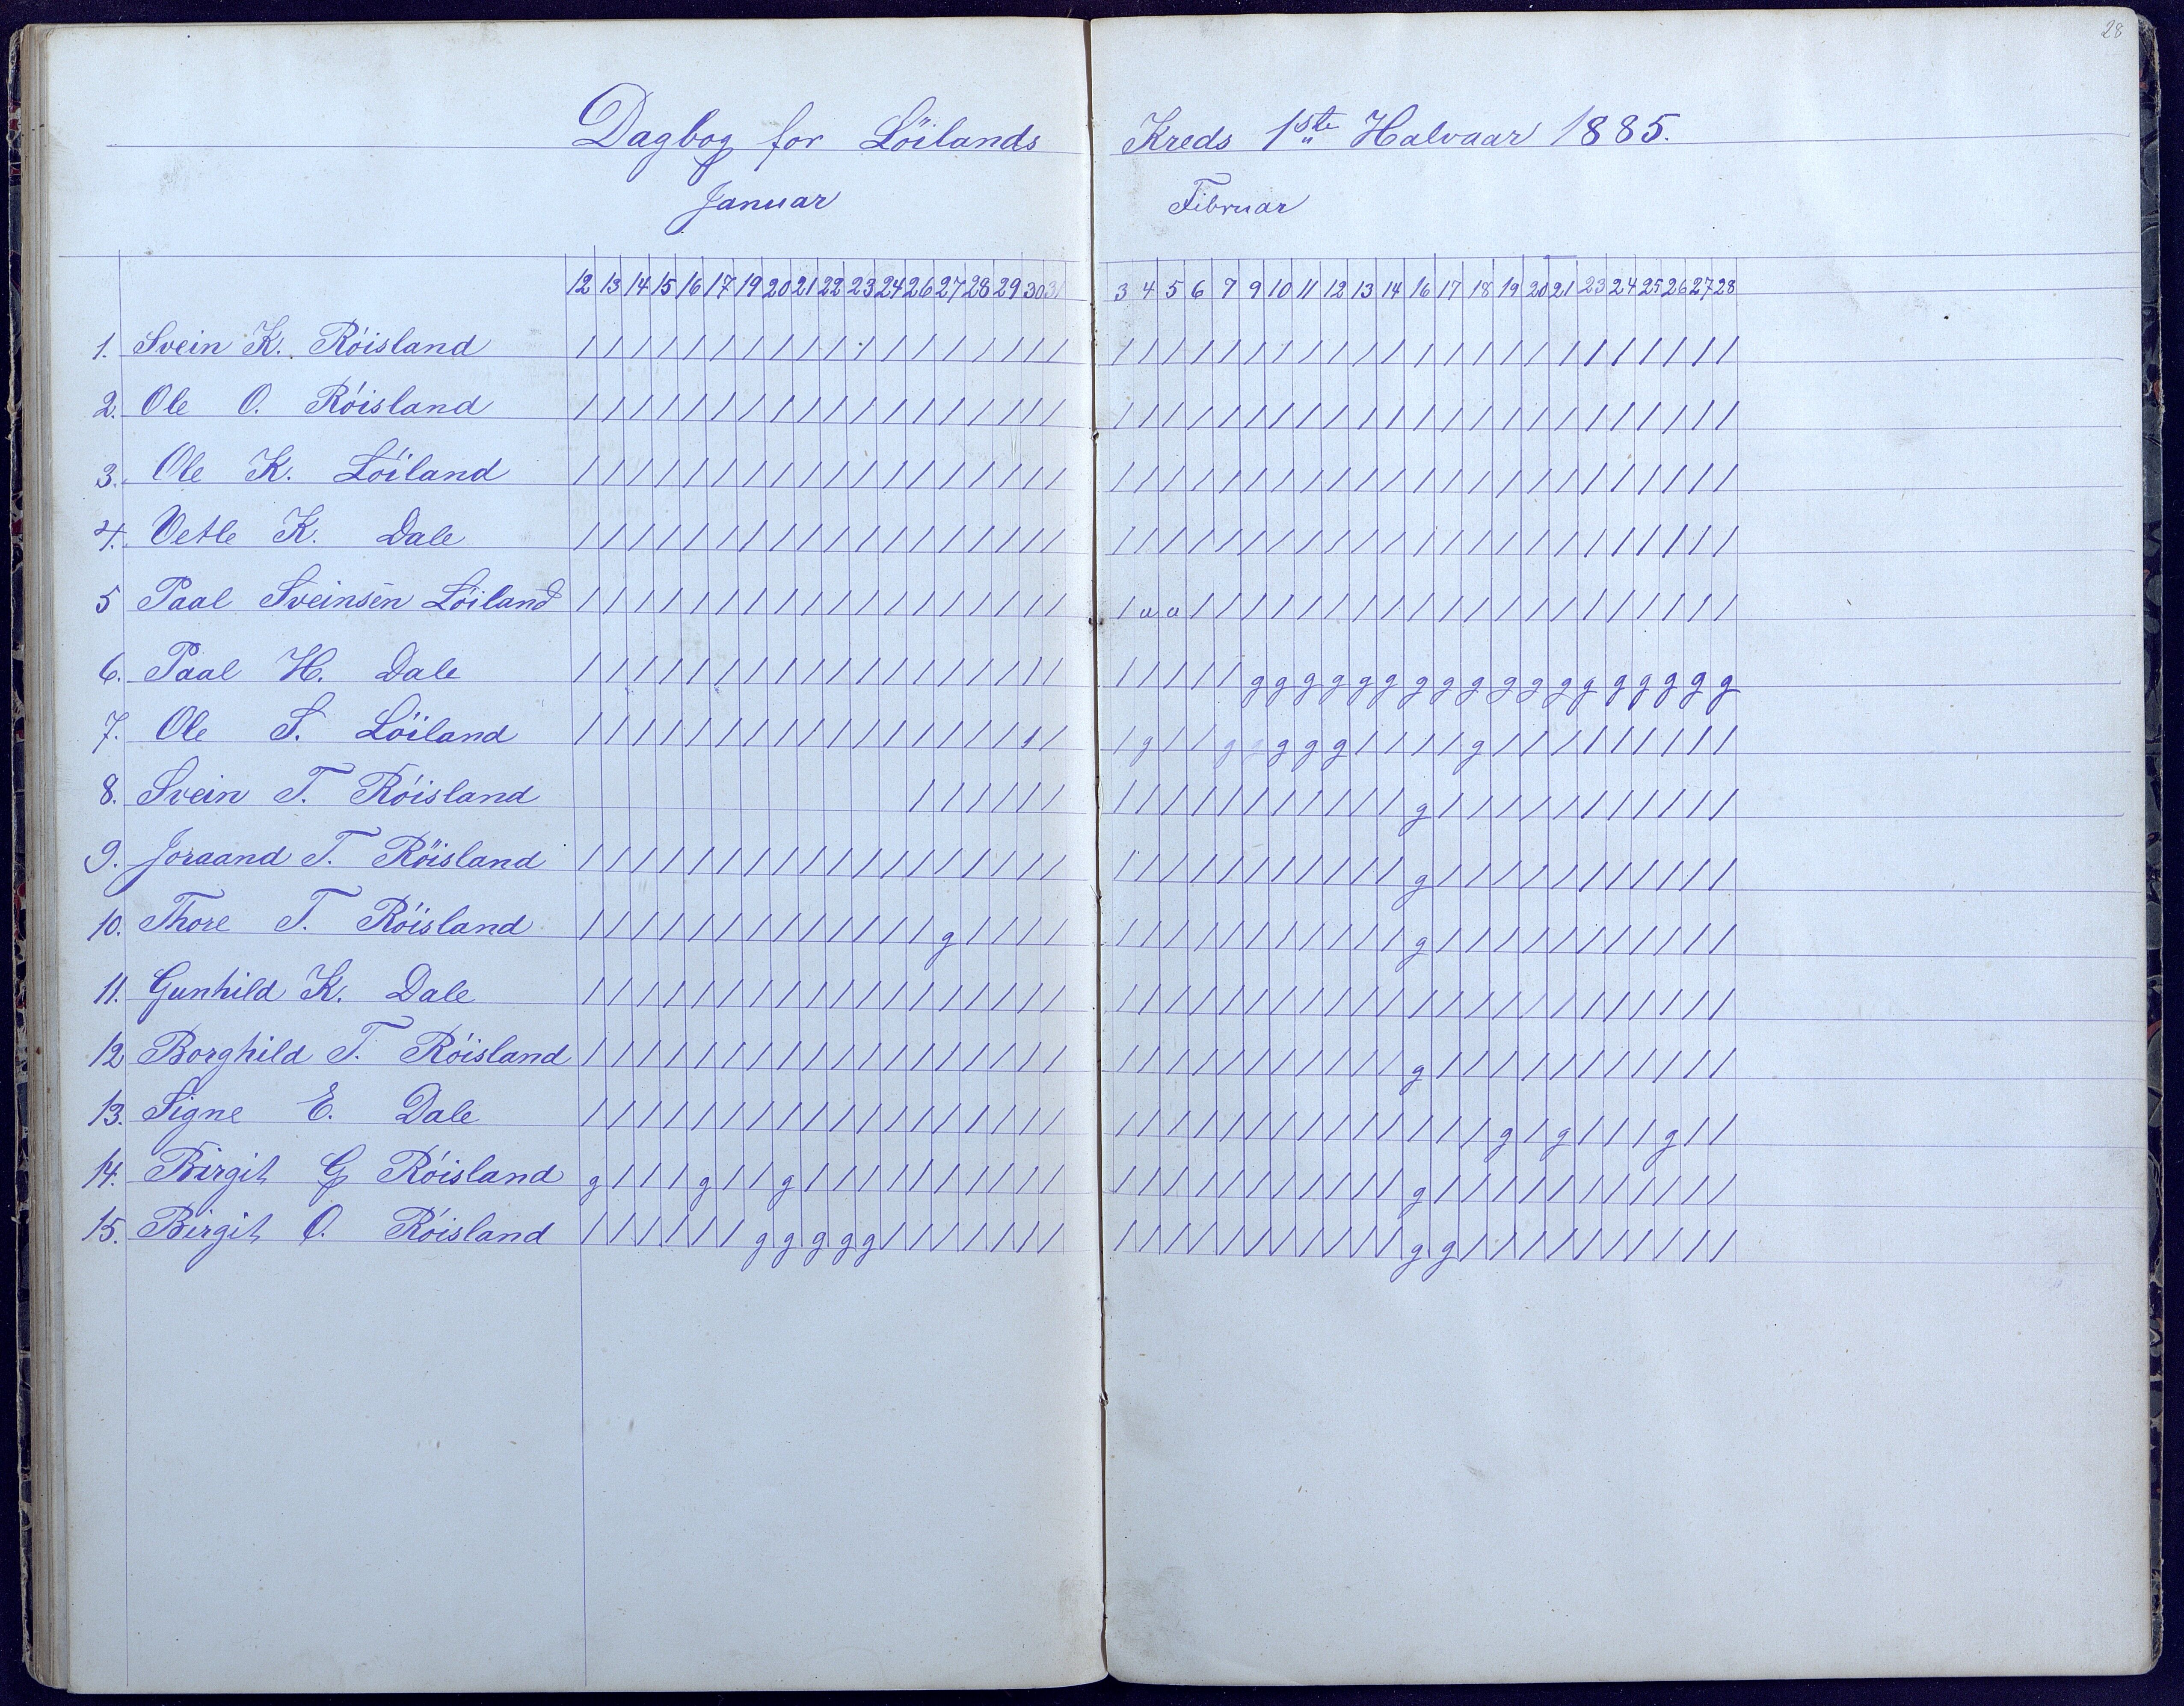 28
Dagbog for Löilands Kreds 1ste Halvaar 1885.
Januar Februar
12 13 14 15 16 17 19 20 21 22 23 24 26 27 28 29 30 31 3 4 5 6 7 9 10 11 12 13 14 16 17 18 19 20 21 23 24 25 26 27 28
1. Svein K. Röisland / / / / / / / / / / / / / / / / / / / / / / / / / / / / / / / / / / / / / / / / /
2. Ole O. Röisland / / / / / / / / / / / / / / / / / / / / / / / / / / / / / / / / / / / / / / / / /
3. Ole K. Löiland / / / / / / / / / / / / / / / / / / / / / / / / / / / / / / / / / / / / / / / / /
4. Vetle K. Dale / / / / / / / / / / / / / / / / / / / / / / / / / / / / / / / / / / / / / / / / /
5 Paal Sveinsen Löiland / / / / / / / / / / / / / / / / / / / a a / / / / / / / / / / / / / / / / / / / /
6. Paal H. Dale / / / / / / / / / / / / / / / / / / / / / / / g g g g g g g g g g g g g g g g g g
7. Ole S. Löiland / / / / / / / / / / / / / / / / / / / g / / g g g g g / / / / g / / / / / / / / /
8. Svein T. Röisland / / / / / / / / / / / / / / / / / g / / / / / / / / / / /
9. Joraand T. Röisland / / / / / / / / / / / / / / / / / / / / / / / / / / / / / g / / / / / / / / / / /
10. Thore T. Röisland / / / / / / / / / / / / / g / / / / / / / / / / / / / / / g / / / / / / / / / / /
11. Gunhild K. Dale / / / / / / / / / / / / / / / / / / / / / / / / / / / / / / / / / / / / / / / / /
12 Borghild T. Röisland / / / / / / / / / / / / / / / / / / / / / / / / / / / / / g / / / / / / / / / / /
13. Signe E. Dale / / / / / / / / / / / / / / / / / / / / / / / / / / / / / / / / g / g / / / g / /
14. Birgit G Röisland g / / / g / / g / / / / / / / / / / / / / / / / / / / / / g / / / / / / / / / / /
15. Birgit O. Röisland / / / / / / g g g g g / / / / / / / / / / / / / / / / / / g g / / / / / / / / / /